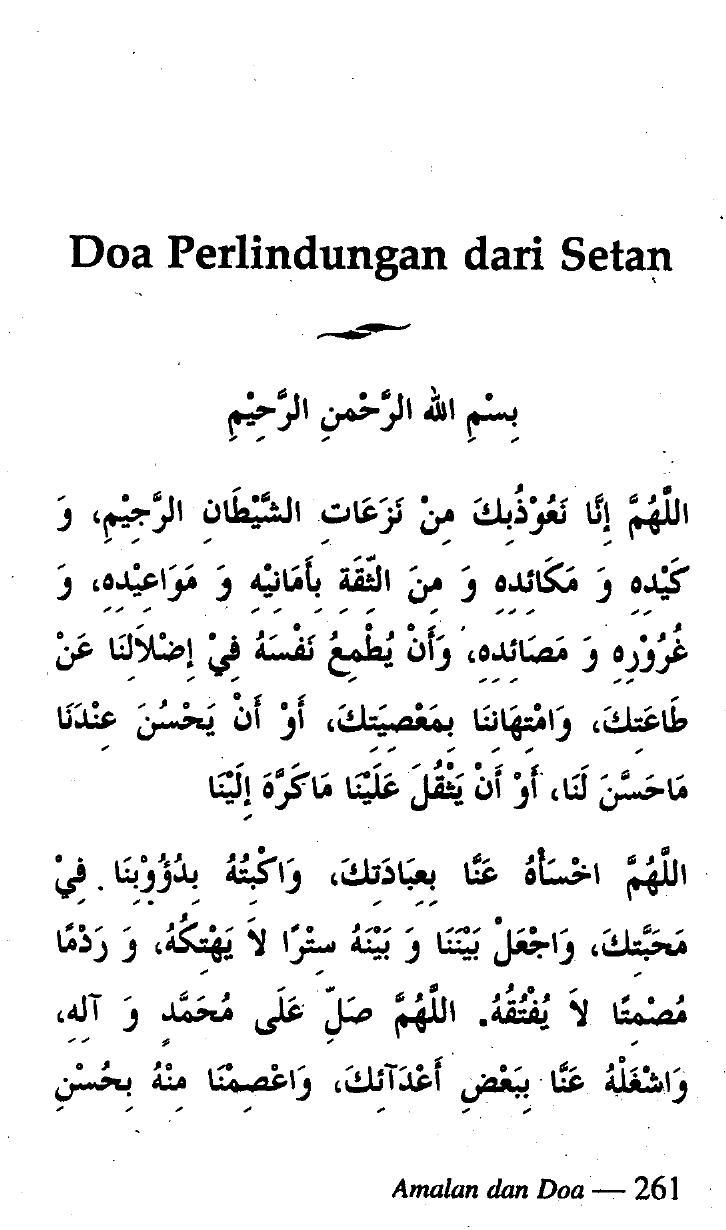 Doa Perlindungan dari Setan
بِسْمِ اللهِ الرَّحْمنِ الرَّحِيْمِ
اللَّهُمَّ إِنَّا نَعُوْذُبِكَ مِنْ نَزَعَاتِ الشَّيْطَانِ الرَّجِيْمِ، وَ
كَيْدِهِ وَ مَكَائِدِهِ وَ مِنَ الثِّقَةِ بِأَمَانِيْهِ وَ مَوَاعِيْدِهِ، وَ
غُرُوْرِهِ وَ مَصَائِدِهِ، وَأَنْ يُطْمِعُ نَفْسَهُ فِيْ إِضْلاَلِنَا عَنْ
طَاعَتِكَ، وَامْتِهَانِنَا بِمَعْصِيَتِكَ، أَوْ أَنْ يَحْسُنَ عِنْدَنَا
مَاحَسَّنَ لَنَا، أَوْ أَنْ يَثْقُلَ عَلَيْنَا مَاكَرَّهَ إِلَيْنَا
اللَّهُمَّ اخْسَأْهُ عَنَّا بِعِبَادَتِكَ، وَاكْبِتْهُ بِدُؤُوْبِنَا فِيْ
مَحَبَّتِكَ، وَاجْعَلْ بَيْنَنَا وَ بَيْنَهُ سِتْرًا لاَ يَهْتِكُهُ، وَ رَدْمًا
مُصْمِتًا لاَ يُفْتِقُهُ. اللَّهُمَّ صَلِّ عَلَى مُحَمَّدٍ وَ آلِهِ،
وَاشْغَلْهُ عَنَّا بِبَعْضِ أَعْدَآئِكَ، وَاعْصِمْنَا مِنْهُ بِحُسْنِ
Amalan dan Doa — 261